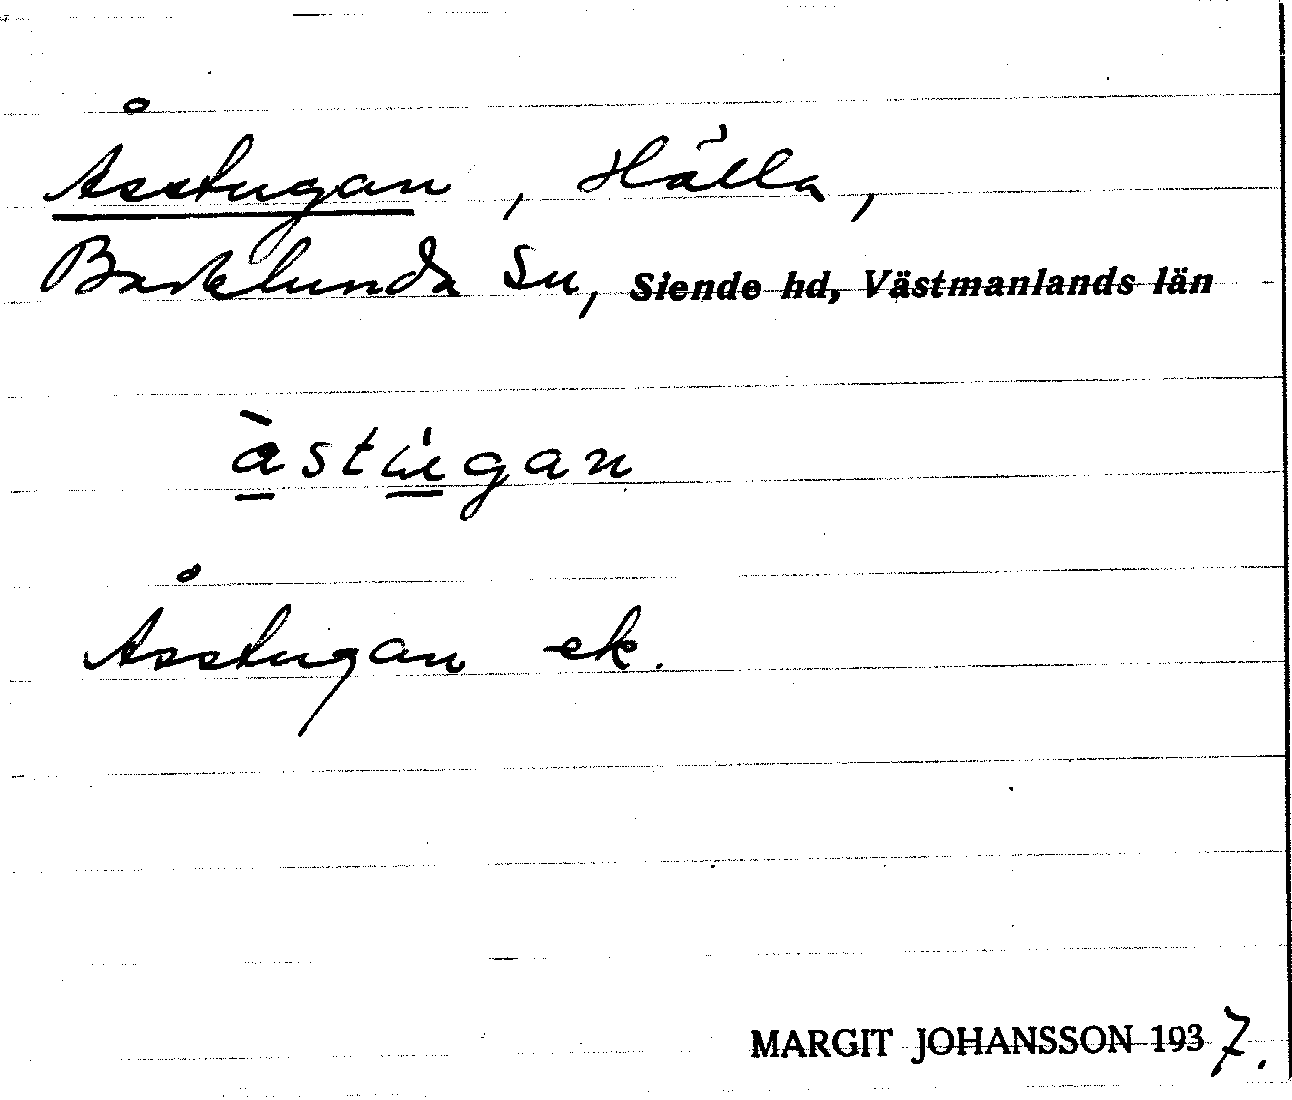 Åsstugan, Hälla,
Badelunda sn, Siende hd, Västmanlands län
à̱stu̱̇gan
Åsstugan ek.
MARGIT JOHANSSON 1937.